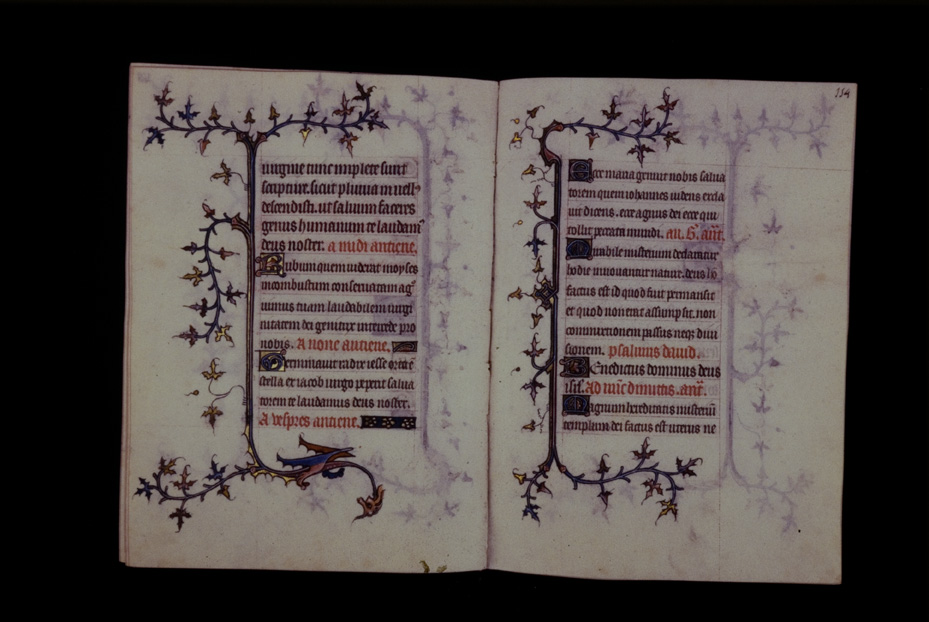 virgine tunc implete sunt
scripture. sicut pluvia in vell9
descendisti. ut salvum faceres
genus humanum te laudam9
deus noster. a midi antiene.
Rubum quem viderat moyses
incombustum conservatam ag
vimus tuam laudabilem virgi
nitatem dei genitrix intercede pro
nobis. A none antiene.
Germinavit radix iesse orta e
stella ex iacob virgo peperit salva
torem te laudamus deus noster.
A vespres antiene.
114
Ecce maria genuit nobis salva
torem quem iohannes videns excla
vit dicens. ecce agnus dei ecce qui
tollit peccata mundi. an.
Mirabile misterium declaratur
hodie innovantur nature. deus ho
factus est id quod fuit permansit
et quod non erat assumpsit. non
commixtionem passus neq; divi
sionem. psalmus david.
Benedictus dominus deus
isrl. Ad nunc dimittis. ant.
Magnum hereditatis misteriu
templum dei factus est uterus ne